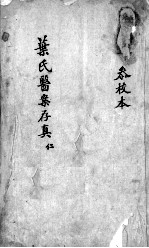 參校本
葉氏醫案存真 仁